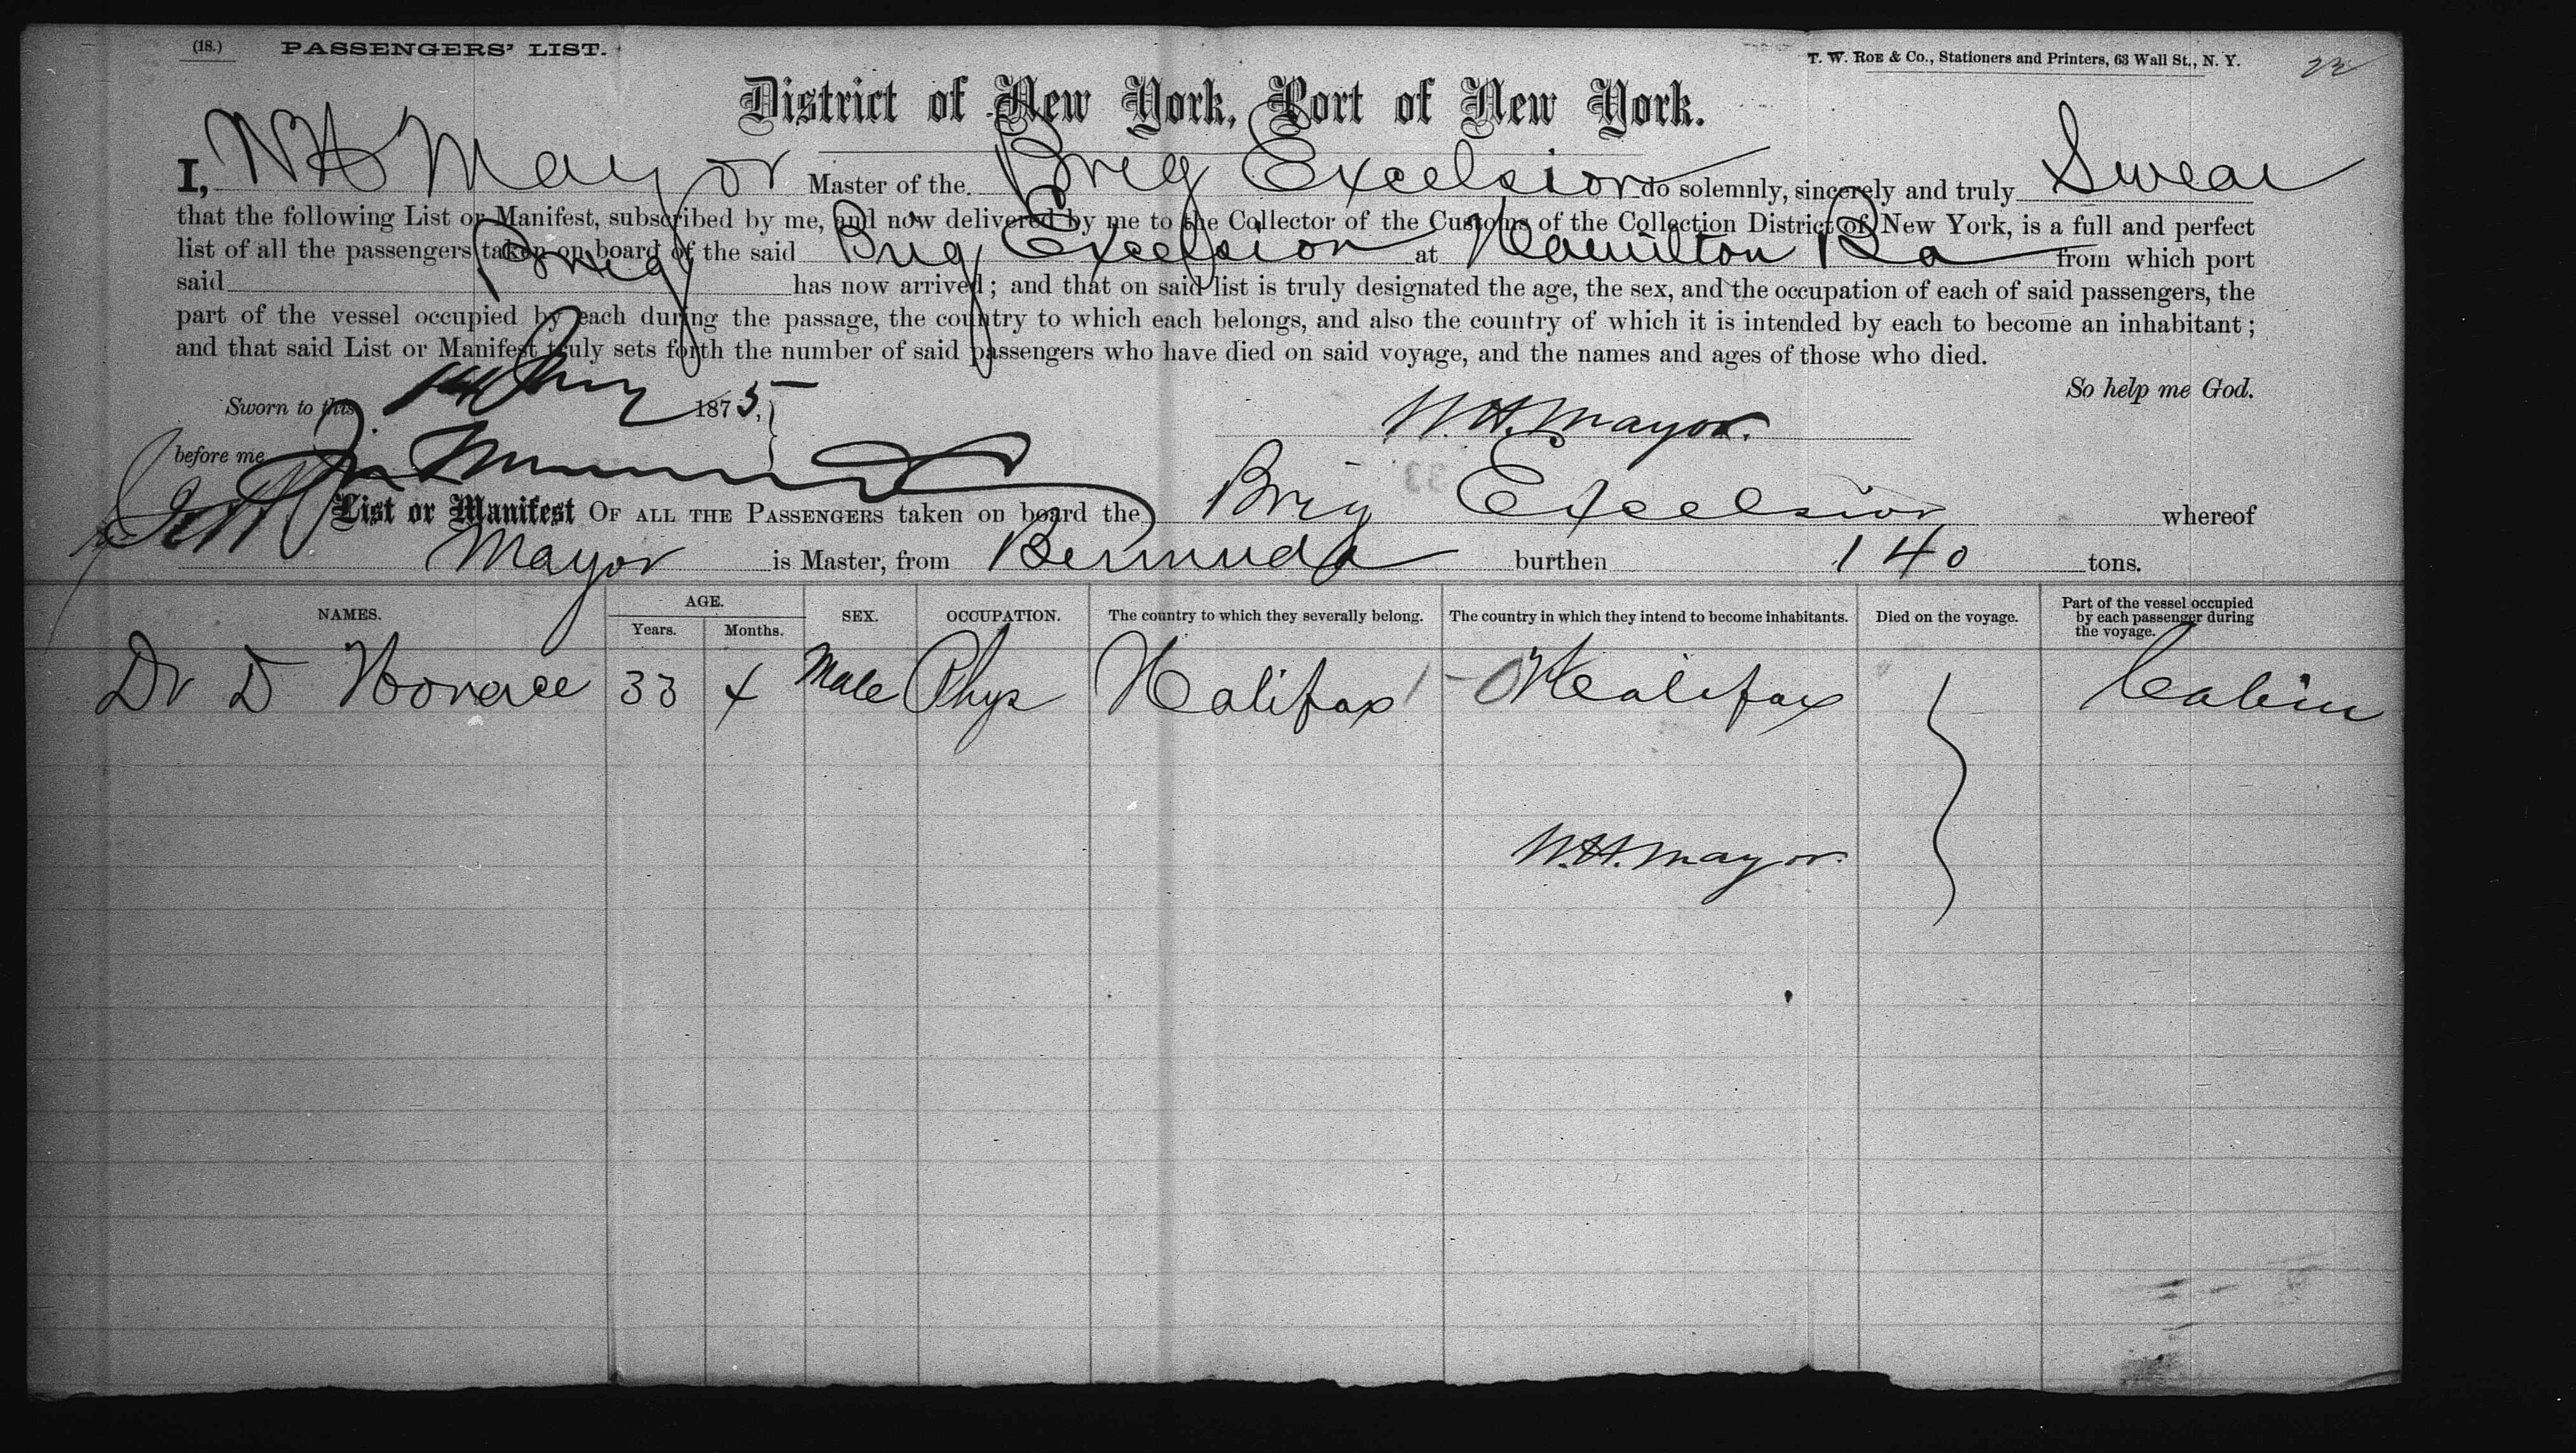 (18.) PASSENGERS' LIST.
T. W. ROE & Co., Stationers and Printers, 63 Wall St., N. Y.
District of New York, Port of New York.
I, W H Mayor Master of the Brig Excelsior do solemnly, sincerely and truly Swear
that the following List or Manifest, subscribed by me, and now delivered by me to the Collector of the Customs of the Collection District of New York, is a full and perfect
list of all the passengers taken on board of the said Brig Excelsior at Hamilton Ba from which port
said Brig has now arrived; and that on said list is truly designated the age, the sex, and the occupation of each of said passengers, the
part of the vessel occupied by each during the passage, the country to which each belongs, and also the country of which it is intended by each to become an inhabitant;
and that said List or Manifest truly sets forth the number of said passengers who have died on said voyage, and the names and ages of those who died.
So help me God.
Sworn to this 1875,
W. H. Mayor.
before me
List or Manifest OF ALL THE PASSENGERS taken on board the Brig Excelsior whereof
Mayor is Master, from Bermuda burthen 140 tons.
NAMES. AGE. Years. Months. SEX. OCCUPATION. The country to which they severally belong. The country in which they intend to become inhabitants. Died on the voyage. Part of the vessel occupied by each passenger during the voyage.
Dr D Horace 33 x Male Phys Halifax Halifax Cabin
W. H. Mayor.